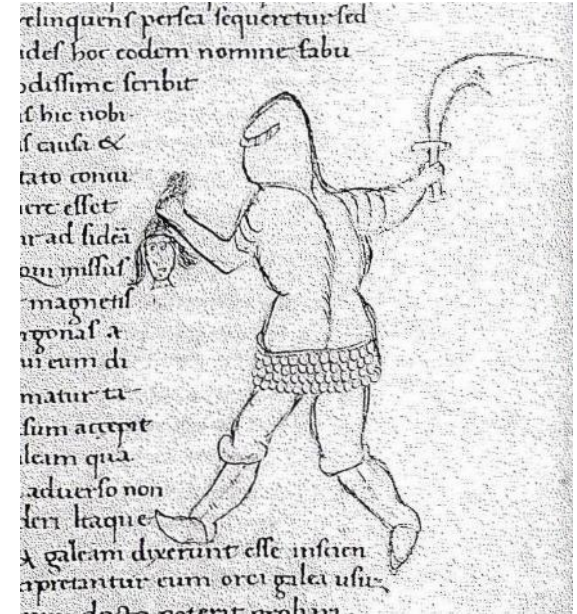 relinquens persea sequeretur sed
ides hoc eodem nomine fabu
odissime scribit
hic nobi
causa &
tato conui
uere esset
ur ad fidẽ
om missus
magnetis
rgonas a
ui eum di
matur ta
sum accepit
leam qua
aduerso non
deri Itaque
galeam dixerunt esse inscien
rpretantur eum orci galea usu
poterit